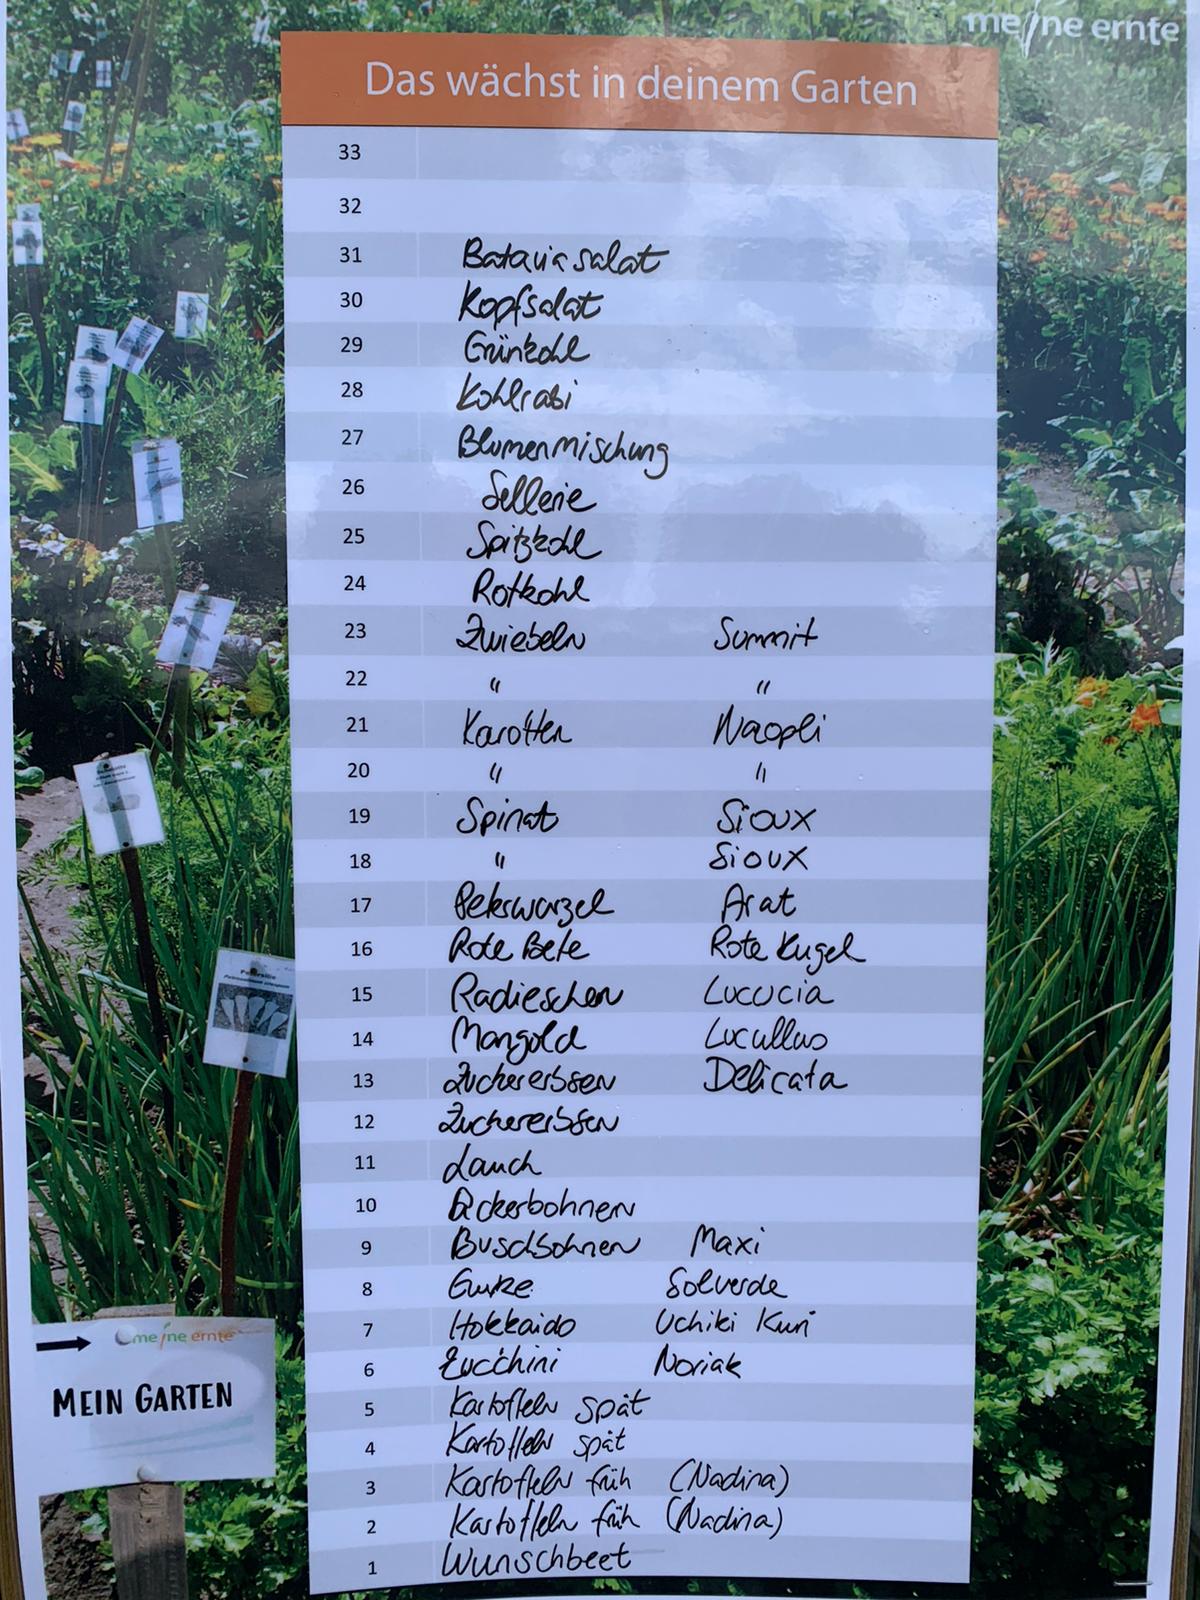 meine ernte
Das wächst in deinem Garten
33
32
31 Batavia salat
30 Kopfsalat
29 Grünkohl
28 Kohlrabi
27 Blumenmischung
26 Sellerie
25 Spitzkohl
24 Rotkohl
23 Zwiebeln Summit
22 " "
21 Karotten Naopli
20 " "
19 Spinat Sioux
18 " Sioux
17 Peterswurzel Arat
16 Rote Bete Rote Kugel
15 Radieschen Lucucia
14 Mangold Lucullus
13 Zuckererbsen Delicata
12 Zuckererbsen
11 Lauch
10 Ackerbohnen
9 Buschbohnen Maxi
8 Gurke Solverde
7 Hokkaido Uchiki Kuri
6 Zucchini Noriak
5 Kartoffeln spät
4 Kartoffeln spät
3 Kartoffeln früh (Nadina)
2 Kartoffeln früh (Nadina)
1 Wunschbeet
Petersilie
meine ernte
MEIN GARTEN